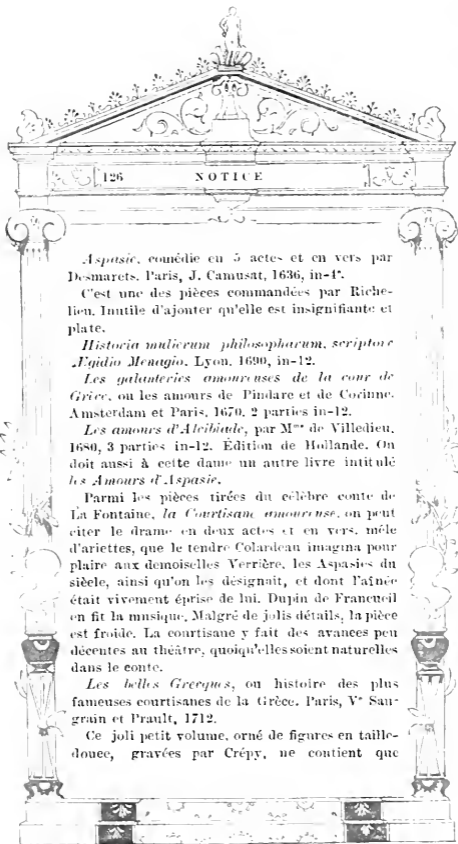 126 NOTICE
Aspasie, comédie en 5 actes et en vers par
Desmarets. Paris, J. Camusat, 1636, in-4°.
C'est une des pièces commandées par Riche-
lieu. Inutile d'ajouter qu'elle est insignifiante et
plate.
Historia mulierum philosopharum, scriptore
Ægidio Menagio. Lyon. 1690, in-12.
Les galanteries amoureuses de la cour de
Grèce, ou les amours de Pindare et de Corinne.
Amsterdam et Paris, 1670. 2 parties in-12.
Les amours d'Alcibiade, par Mme de Villedieu.
1680, 3 parties in-12. Édition de Hollande. On
doit aussi à cette dame un autre livre intitulé
les Amours d'Aspasie.
Parmi les pièces tirées du célèbre conte de
La Fontaine, la Courtisane amoureuse, on peut
citer le drame en deux actes et en vers, mêlé
d'ariettes, que le tendre Colardeau imagina pour
plaire aux demoiselles Verrière, les Aspasies du
siècle, ainsi qu'on les désignait, et dont l'aînée
était vivement éprise de lui. Dupin de Francueil
en fit la musique. Malgré de jolis détails, la pièce
est froide. La courtisane y fait des avances peu
décentes au théâtre, quoiqu'elles soient naturelles
dans le conte.
Les belles Grecques, ou histoire des plus
fameuses courtisanes de la Grèce. Paris, Ve Sau-
grain et Prault, 1712.
Ce joli petit volume, orné de figures en taille-
douce, gravées par Crépy, ne contient que